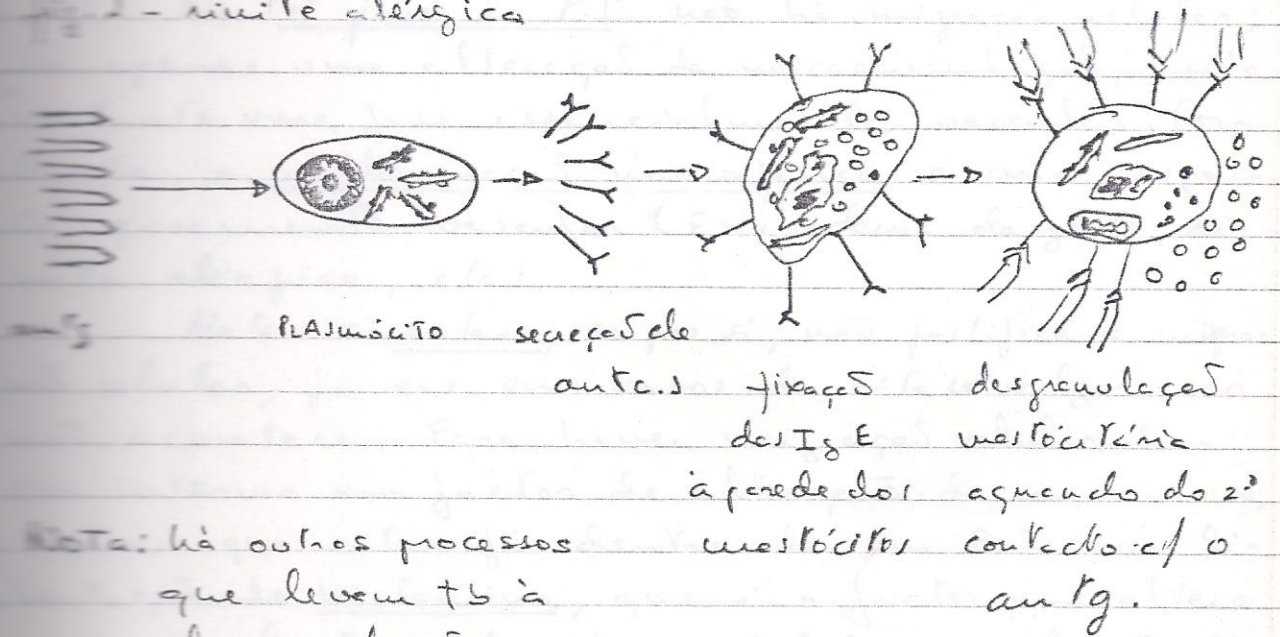 - rinite alérgica
PLASMÓCITO
secreção de
antc.s
fixação
das IgE
à parede dos
mastócitos
desgranulação
mastócitária
aquando do 2º
contacto c/ o
antg.
NOTA: há outros processos
que levem tb à